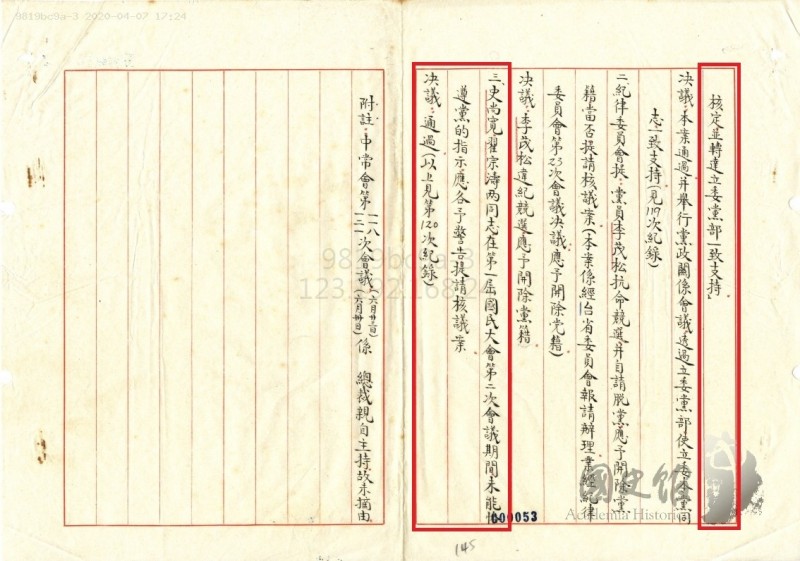 9819bc9a-3 2020-04-07 17:24
核定並轉達立委黨部一致支持」
決議：本案通過并舉行黨政關係會議透過立委黨部使立委本黨同
志一致支持（見119次紀錄）
二、紀律委員會提：黨員李茂松抗命競選并自請脫黨應予開除黨
籍當否提請核議案（本案係經台省委員會報請辦理業經紀律
委員會第23次會議決議應予開除党籍）
決議：李茂松違紀競選應予開除黨籍
三、史尚寬翟宗濤两同志在第一屆國民大會第二次會議期間未能恪
遵黨的指示應各予警告提請核議案
決議：通過（以上見第120次紀錄）
附註：中常會第一一八
一二一次會議（六月廿三日）
（六月卅日）係 總裁親自主持故未摘由
9819bc9a-3
000053
145
國史館
Academia Historica